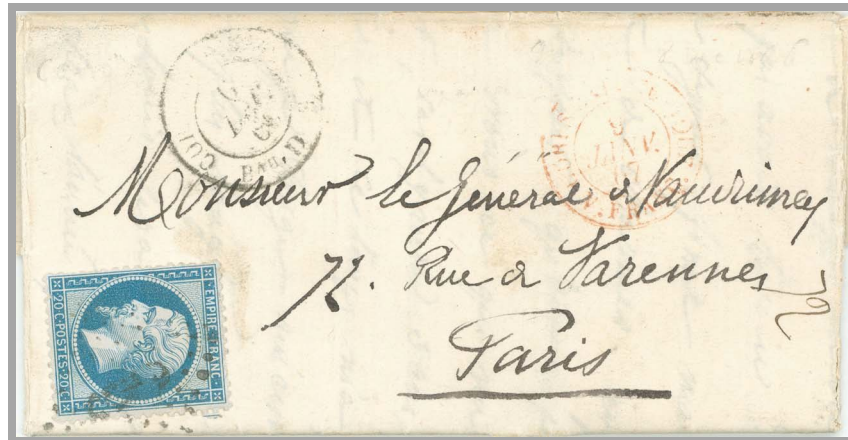 Bau. D
JANV.
Monsieur le Général de Vaudrimey
72. Rue de Varennes 72
Paris
EMPIRE FRANC.
20 C POSTES 20 C